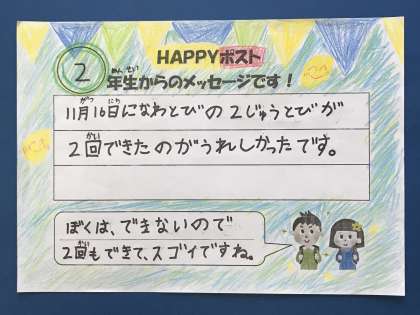 HAPPYポスト
2年生からのメッセージです！
ねんせい
がつ にち
11月16日になわとびの2じゅうとびが
かい
2回できたのがうれしかったです。
ぼくは、できないので
かい
2回もできて、スゴイですね。